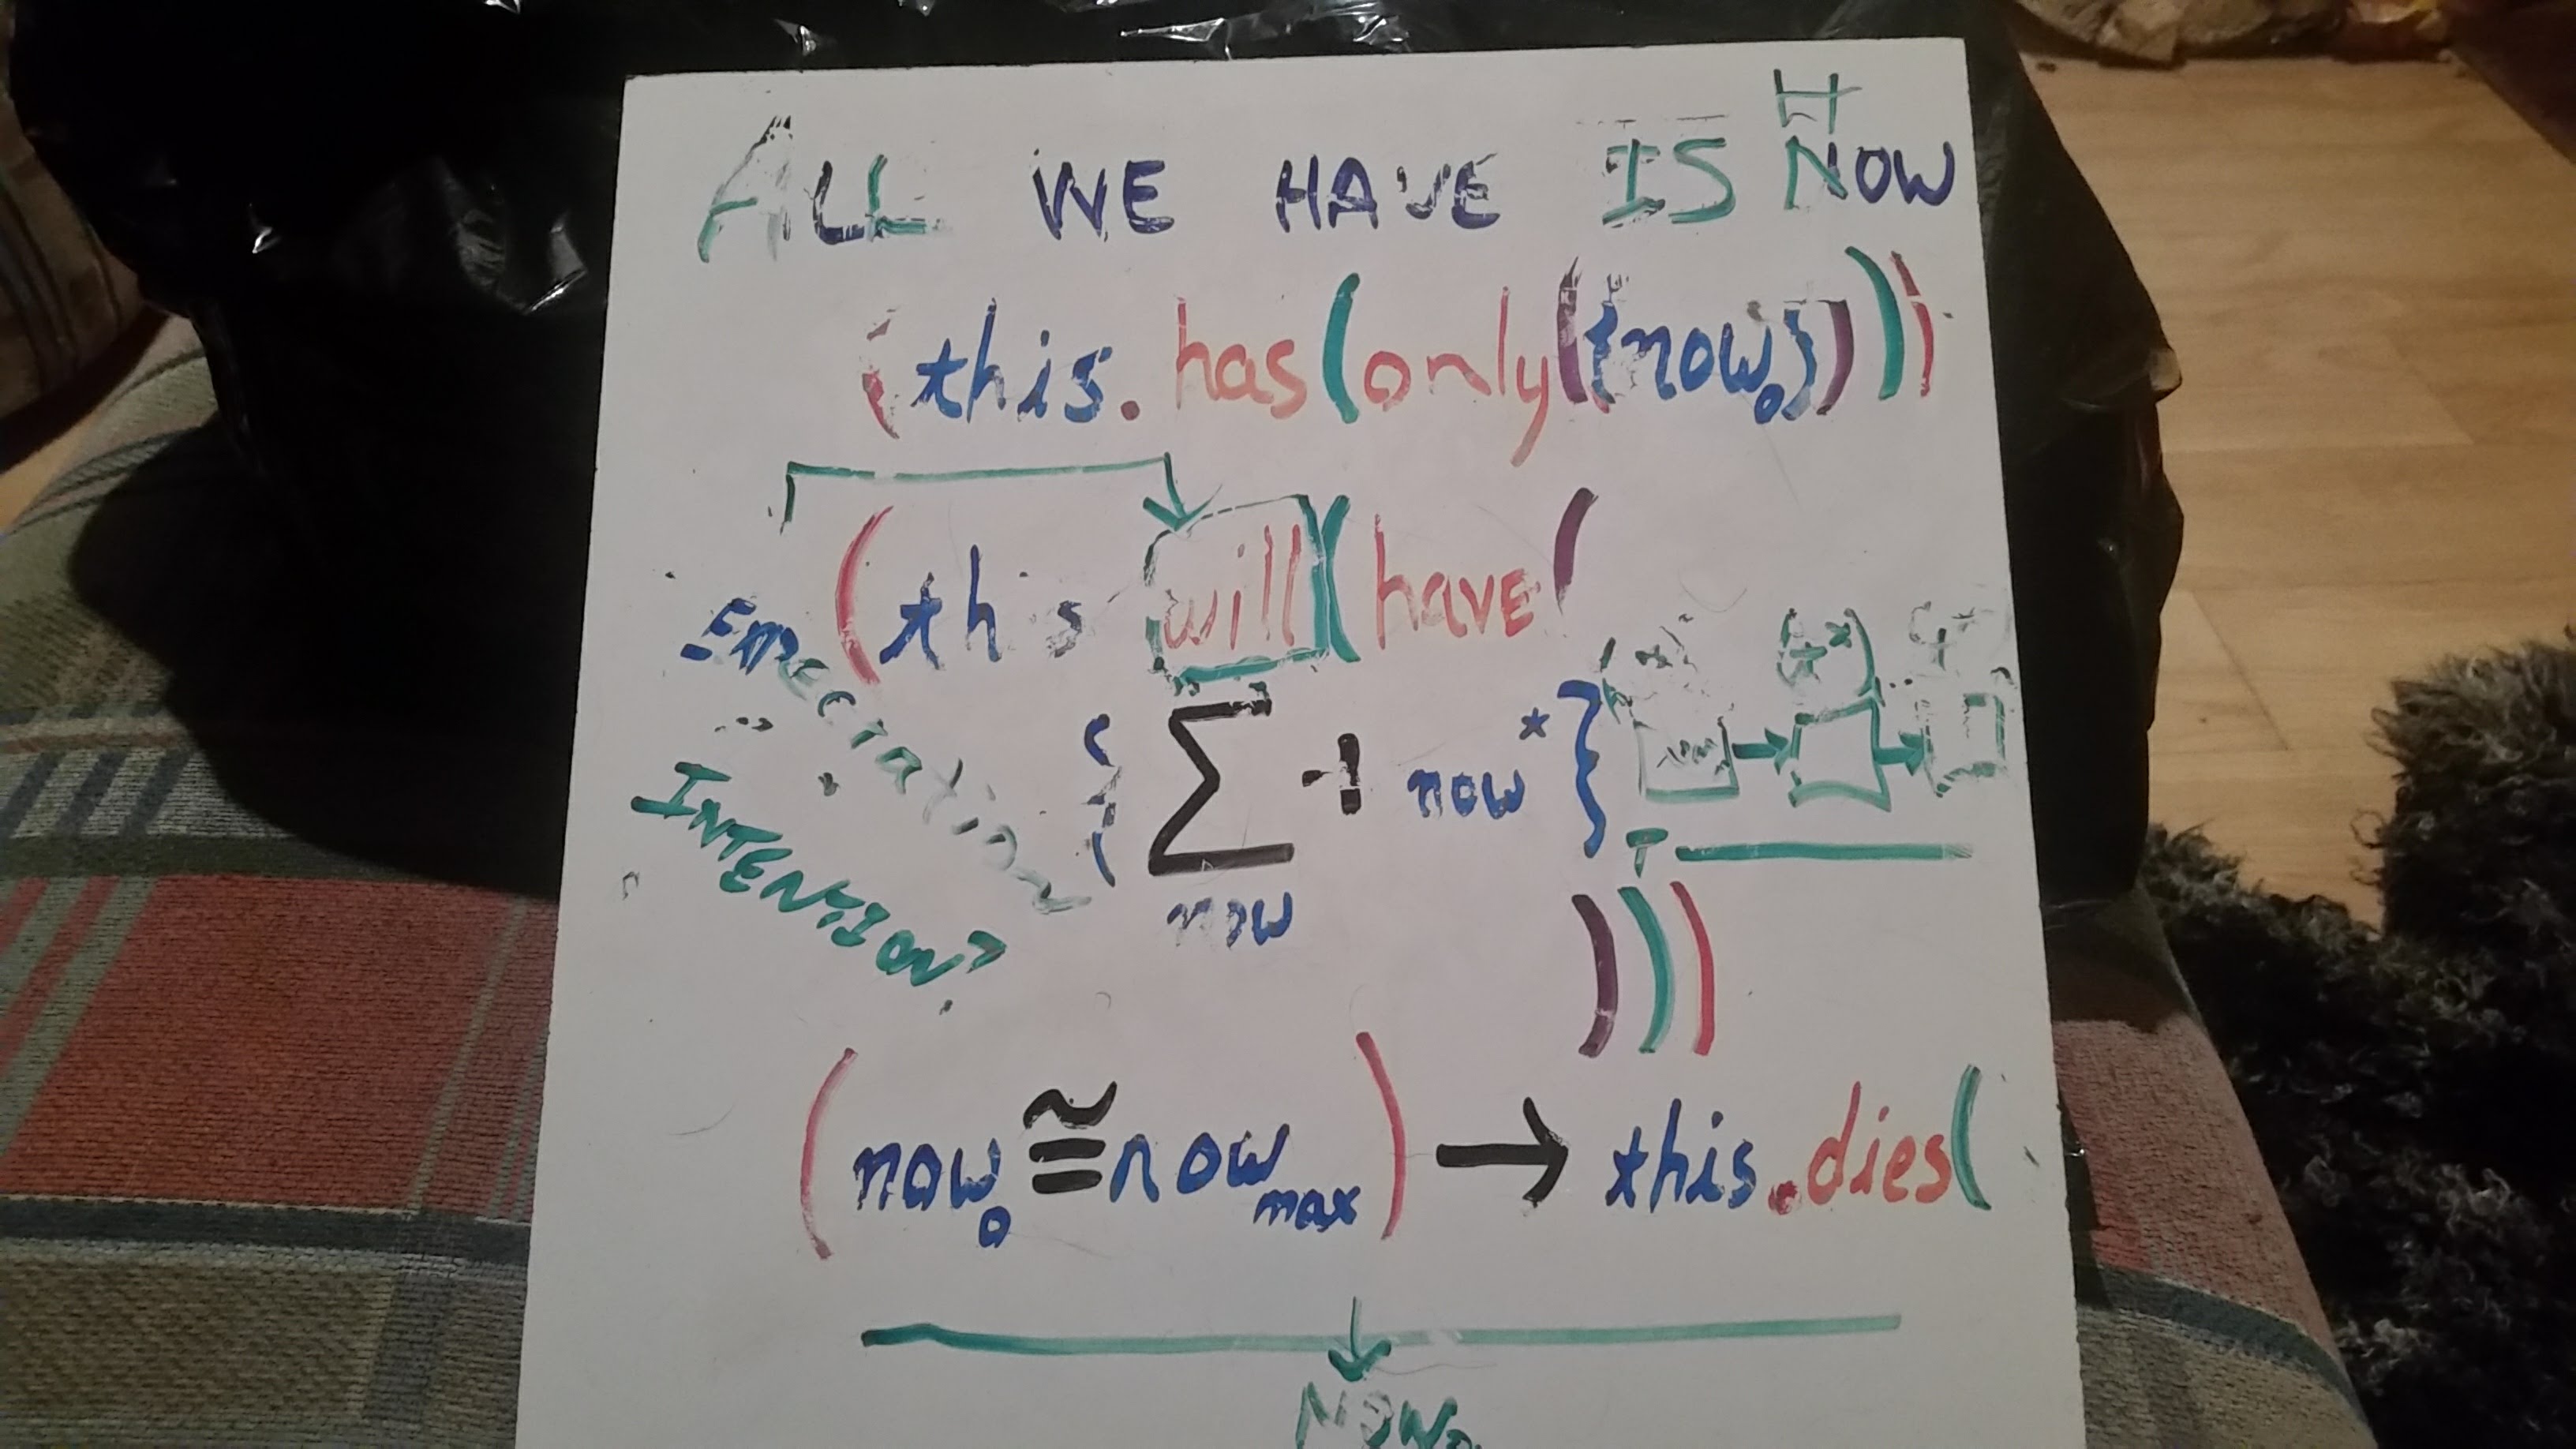 H
ALL WE HAVE IS NOW
(this.has(only({now₀})))
(this will(have(
EXPECTATION
INTENTION?
{Σ + now*}
now
T
)))
(now₀ ≅ now max) → this.dies(
NOW₀